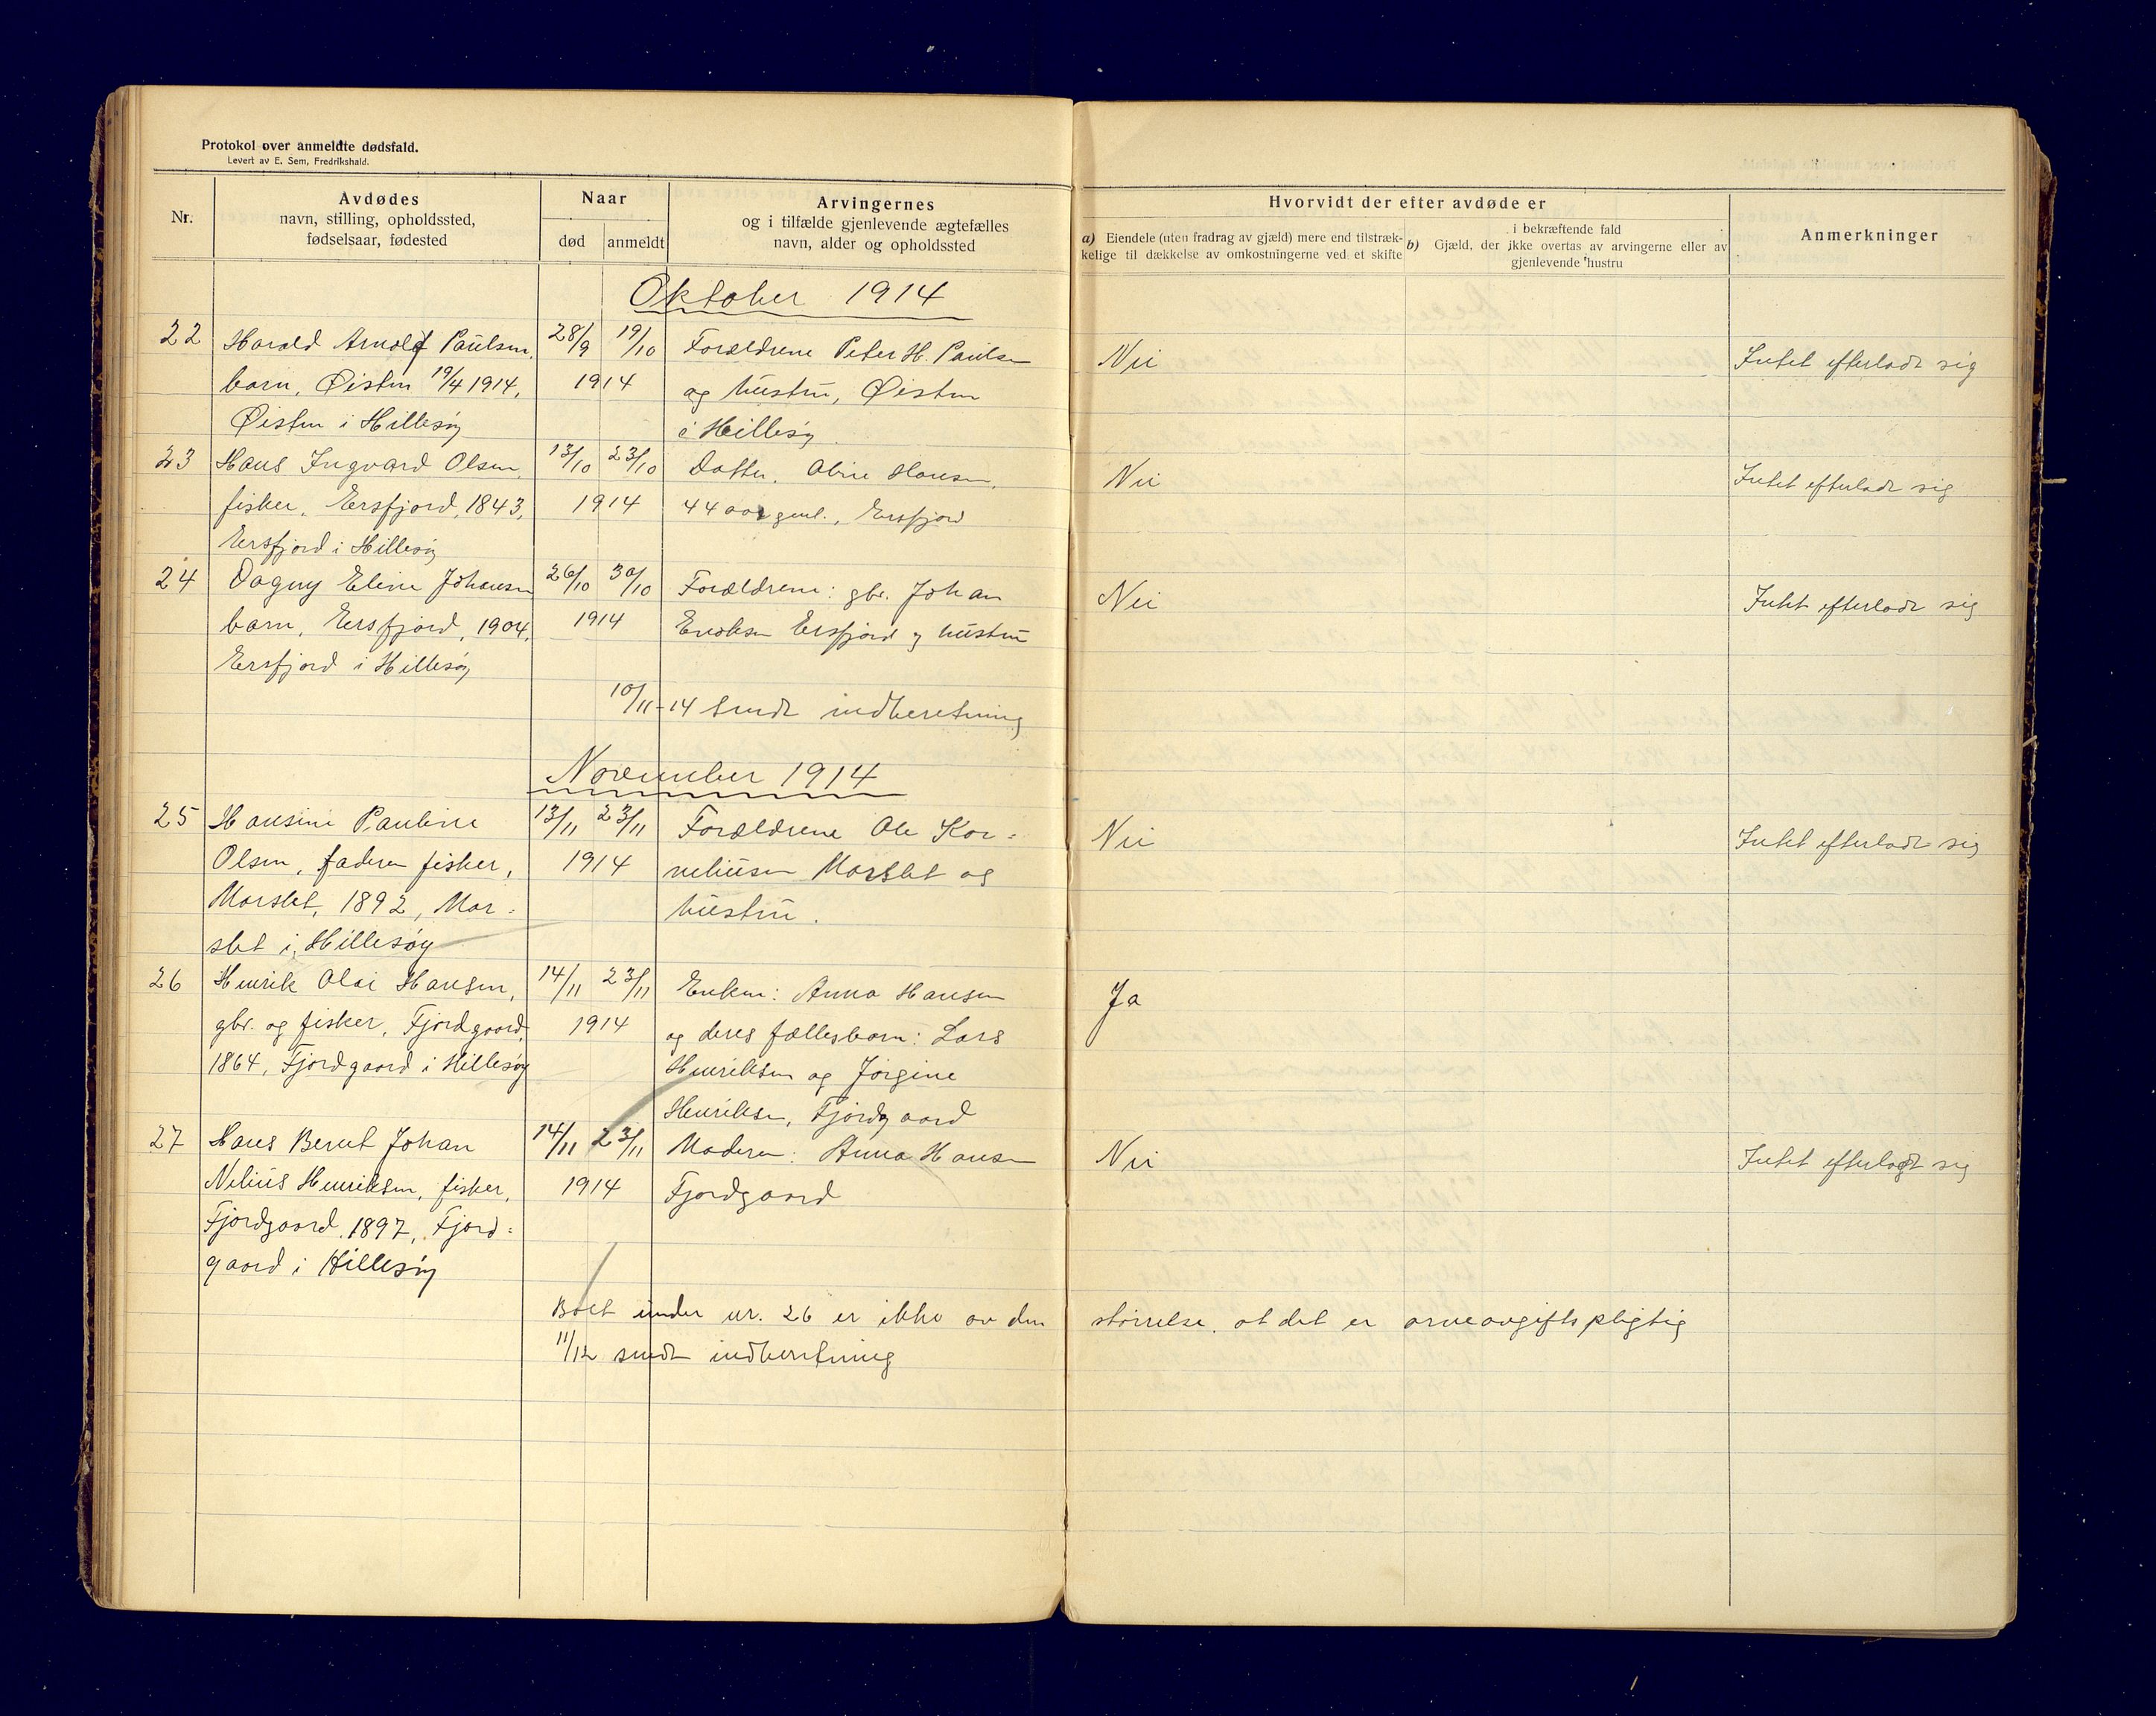 Protokol over anmeldte dødsfald.
Levert av E. Sem, Fredrikshald.
Nr.
Avdødes
navn, stilling, opholdssted,
fødselsaar, fødested
Naar
død
anmeldt
Arvingernes
og i tilfælde gjenlevende ægtefælles
navn, alder og opholdssted
Hvorvidt der efter avdøde er
a) Eiendele (uten fradrag av gjæld) mere end tilstræk-
kelige til dækkelse av omkostningerne ved et skifte
i bekræftende fald
b) Gjæld, der ikke overtas av arvingerne eller av
gjenlevende hustru
Anmerkninger
Oktober 1914
22 Harald Arnolf Paulsen, 28/9 19/10 Forældrene Peter H. Paulsen Nei Intet efterladt sig
barn, Øisten 19/4 1914, 1914 og hustru, Øisten
Øisten i Hillesøy i Hillesøy.
23 Hans Ingvard Olsen, 13/10 23/10 Datter, Oline Hansen, Nei Intet efterladt sig
fisker, Ersfjord, 1843, 1914 44 aar gml., Ersfjord
Ersfjord i Hillesøy
24 Dagny Eline Johansen 26/10 30/10 Forældrene: gbr. Johan Nei Intet efterladt sig
barn, Ersfjord, 1904, 1914 Eriksen Ersfjord og hustru
Ersfjord i Hillesøy
10/11-14 sendt indberetning
November 1914
25 Hansine Pauline 13/11 23/11 Forældrene Ole Kor= Nei Intet efterladt sig
Olsen, faderen fisker, 1914 neliusen Morslet og
Morslet, 1892, Mor= hustru.
slet i Hillesøy
26 Henrik Olai Hansen, 14/11 23/11 Enken: Anna Hansen Ja
gbr. og fisker, Fjordgaard, 1914 og deres fællesbarn: Lars
1864, Fjordgaard i Hillesøy Henriksen og Jørgine
Henriksen, Fjordgaard
27 Hans Bernt Johan 14/11 23/11 Moderen: Anna Hansen Nei Intet efterladt sig
Nelius Henriksen, fisker, 1914 Fjordgaard
Fjordgaard, 1897, Fjord=
gaard i Hillesøy
Boet under nr. 26 er ikke av den størrelse, at det er arveavgiftspligtig
11/12 sendt indberetning